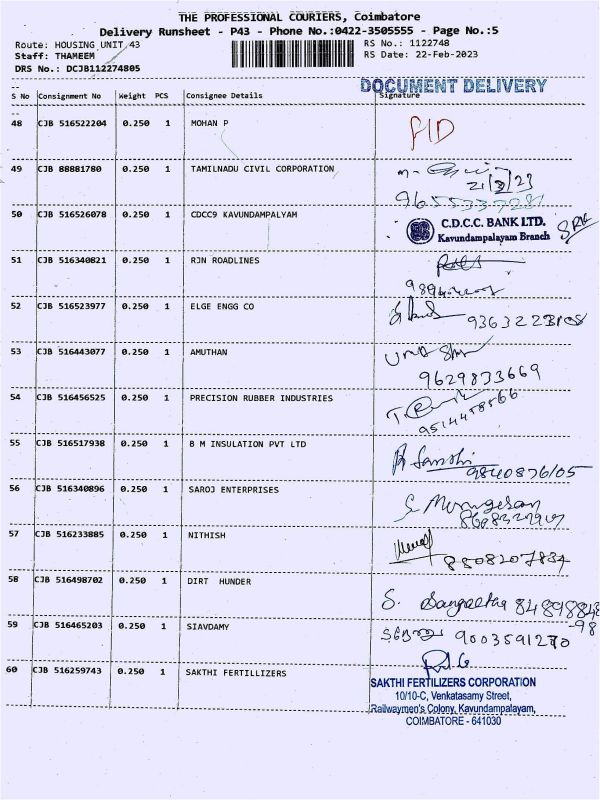 THE PROFESSIONAL COURIERS, Coimbatore
Delivery Runsheet - P43 - Phone No.:0422-3505555 - Page No.:5
Route: HOUSING UNIT 43
RS No.: 1122748
Staff: THAMEEM
RS Date: 22-Feb-2023
DRS No.: DCJB112274805
DOCUMENT DELIVERY
S No Consignment No Weight PCS Consignee Details Signature
48 CJB 516522204 0.250 1 MOHAN P
49 CJB 88881780 0.250 1 TAMILNADU CIVIL CORPORATION
50 CJB 516526078 0.250 1 CDCC9 KAVUNDAMPALYAM
C.D.C.C. BANK LTD.
Kavundampalayam Branch
51 CJB 516340821 0.250 1 RJN ROADLINES
52 CJB 516523977 0.250 1 ELGE ENGG CO
53 CJB 516443077 0.250 1 AMUTHAN
9629833669
54 CJB 516456525 0.250 1 PRECISION RUBBER INDUSTRIES
55 CJB 516517938 0.250 1 B M INSULATION PVT LTD
56 CJB 516340896 0.250 1 SAROJ ENTERPRISES
S. Murugesan
57 CJB 516233885 0.250 1 NITHISH
8808207834
58 CJB 516498702 0.250 1 DIRT HUNDER
S. Sangeetha
59 CJB 516465203 0.250 1 SIAVDAMY
9003591270
60 CJB 516259743 0.250 1 SAKTHI FERTILLIZERS
SAKTHI FERTILIZERS CORPORATION
10/10-C, Venkatasamy Street,
Railwaymen's Colony, Kavundampalayam,
COIMBATORE - 641030